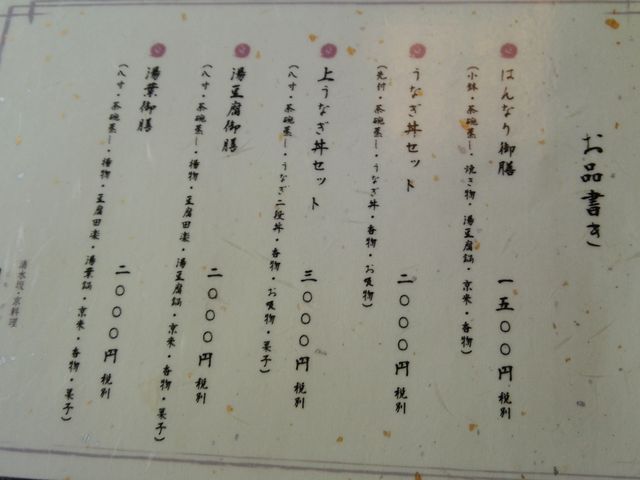 お品書き
はんなり御膳
一五〇〇円 税別
(小鉢・茶碗蒸し・焼き物・湯豆腐鍋・京米・香物)
うなぎ丼セット
二〇〇〇円 税別
(先付・茶碗蒸し・うなぎ丼・香物・お吸物)
上うなぎ丼セット
三〇〇〇円 税別
(八寸・茶碗蒸し・うなぎ二段丼・香物・お吸物・菓子)
湯豆腐御膳
二〇〇〇円 税別
(八寸・茶碗蒸し・揚物・豆腐田楽・湯豆腐鍋・京米・香物・菓子)
湯葉御膳
二〇〇〇円 税別
(八寸・茶碗蒸し・揚物・豆腐田楽・湯葉鍋・京米・香物・菓子)
清水坂・京料理